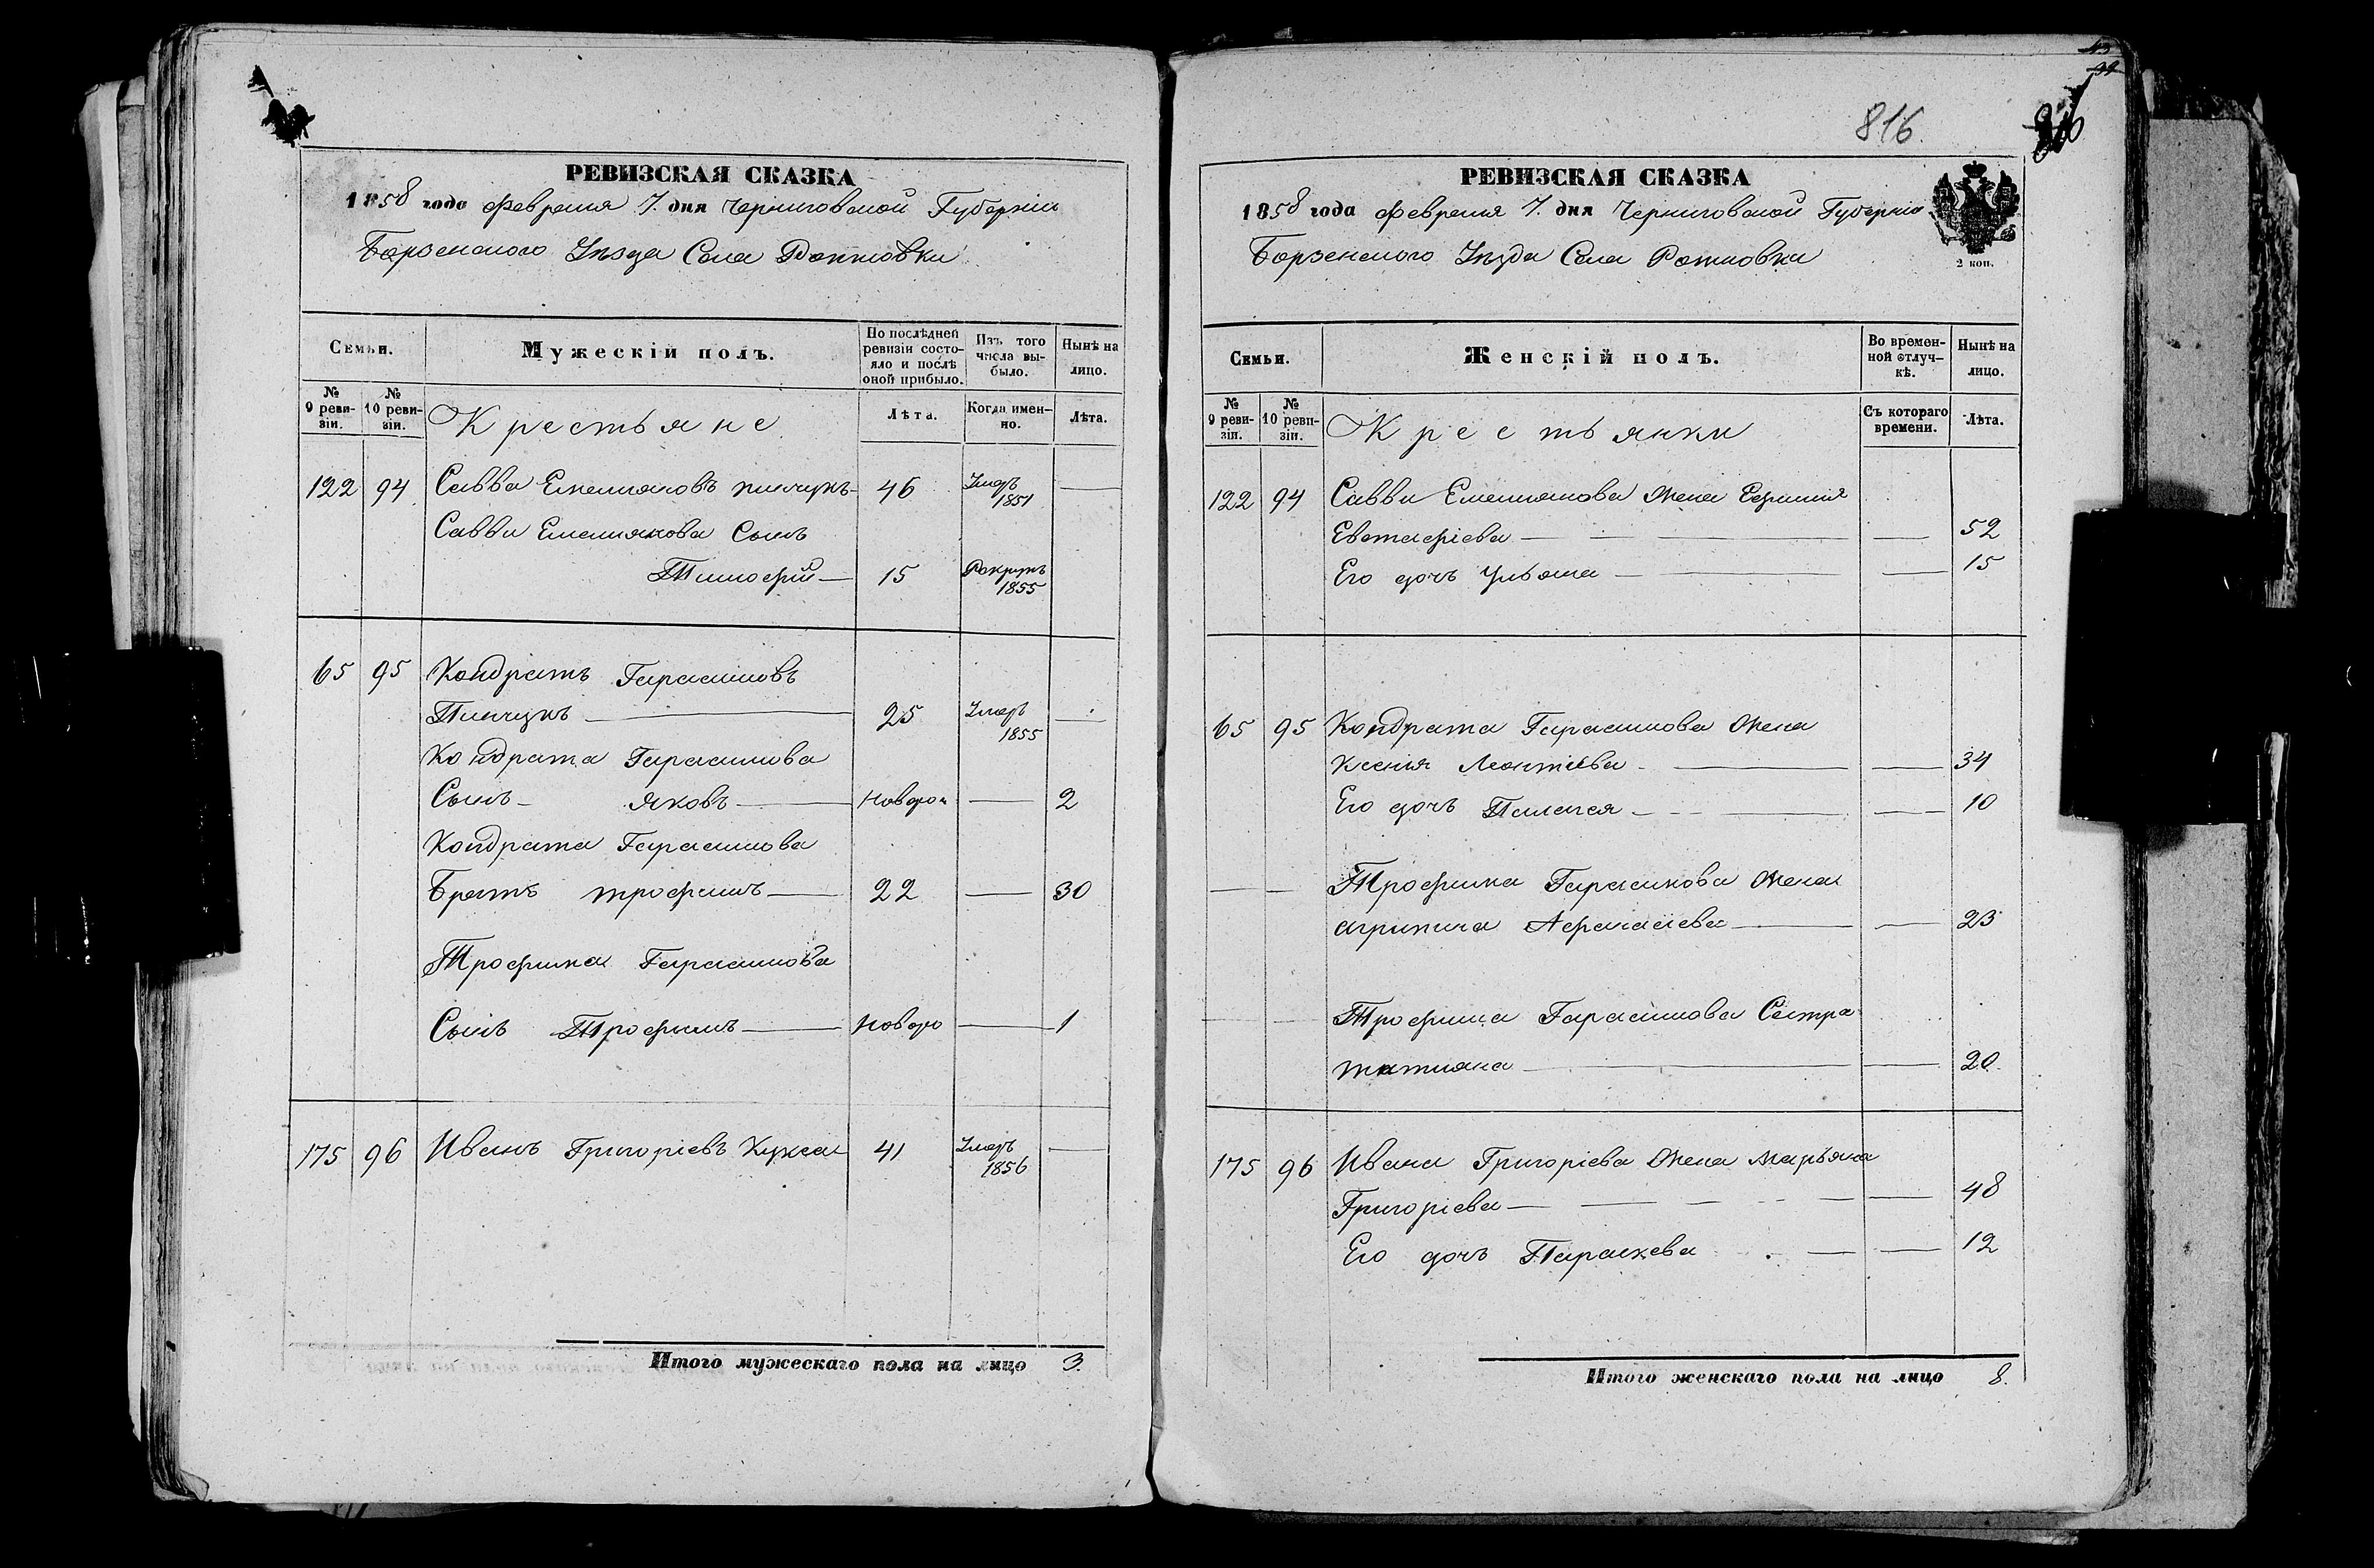 РЕВИЗСКАЯ СКАЗКА
1858 года февраля 7. дня Черниговской Губерніи
Борзенского Уезда Села
Семьи.
Мужескій полъ.
По послѣдней ревизіи состояло и послѣ оной прибыло.
Изъ того числа выбыло.
Нынѣ на лицо.
№ 9 ревизіи.
№ 10 ревизіи.
Крестьяне
Лѣта.
Когда именно.
Лѣта.
122 94 Савва Емельяновъ Пинчукъ 46 Умеръ 1851
Саввы Емельянова Сынъ
Тимофій 15 Рекрутъ 1855
65 95 Кондратъ Гарасимовъ
Пинчукъ 25 Умеръ 1855
Кондрата Гарасимова
Сынъ Яковъ новорож 2
Кондрата Гарасимова
Братъ трофимъ 22 30
Трофима Гарасимова
Сынъ Трофимъ новоро 1
175 96 Иванъ Григоріевъ Кукса 41 Умеръ 1856
Итого мужескаго пола на лицо 3.
816.
РЕВИЗСКАЯ СКАЗКА
1858 года февраля 7. дня Черниговской Губерніи
Борзенского Уезда Села
2 коп.
Семьи.
Женскій полъ.
Во временной отлучкѣ.
Нынѣ на лицо.
№ 9 ревизіи.
№ 10 ревизіи.
Крестьянки
Съ котораго времени.
Лѣта.
122 94 Саввы Емельянова Жена
Евстафіева 52
Его дочь Ульяна 15
65 95 Кондрата Гарасимова Жена
Ксенія Леонтіева 34
Его дочь Пелагея 10
Трофима Гарасимова Жена
агрипина Афанасіева 23
Трофима Гарасимова Сестра
татияна 20
175 96 Ивана Григоріева Жена марьяна
Григоріева 48
Его дочь Параскева 12
Итого женскаго пола на лицо 8.